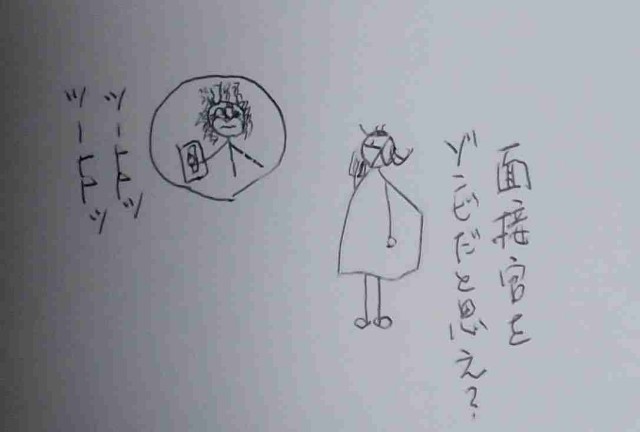 面接官を
ゾンビだと思え?
ツートトツ
ツートトツ